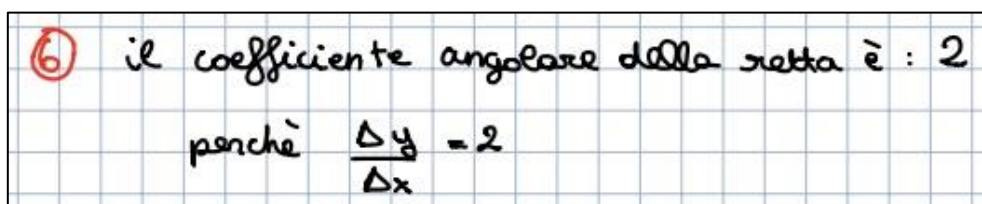 6 il coefficiente angolare della retta è : 2
perchè Δy/Δx = 2